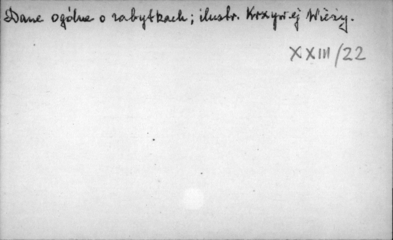 Dane ogólne o zabytkach; ilustr. Krzywej Wieży.
XXIII/22